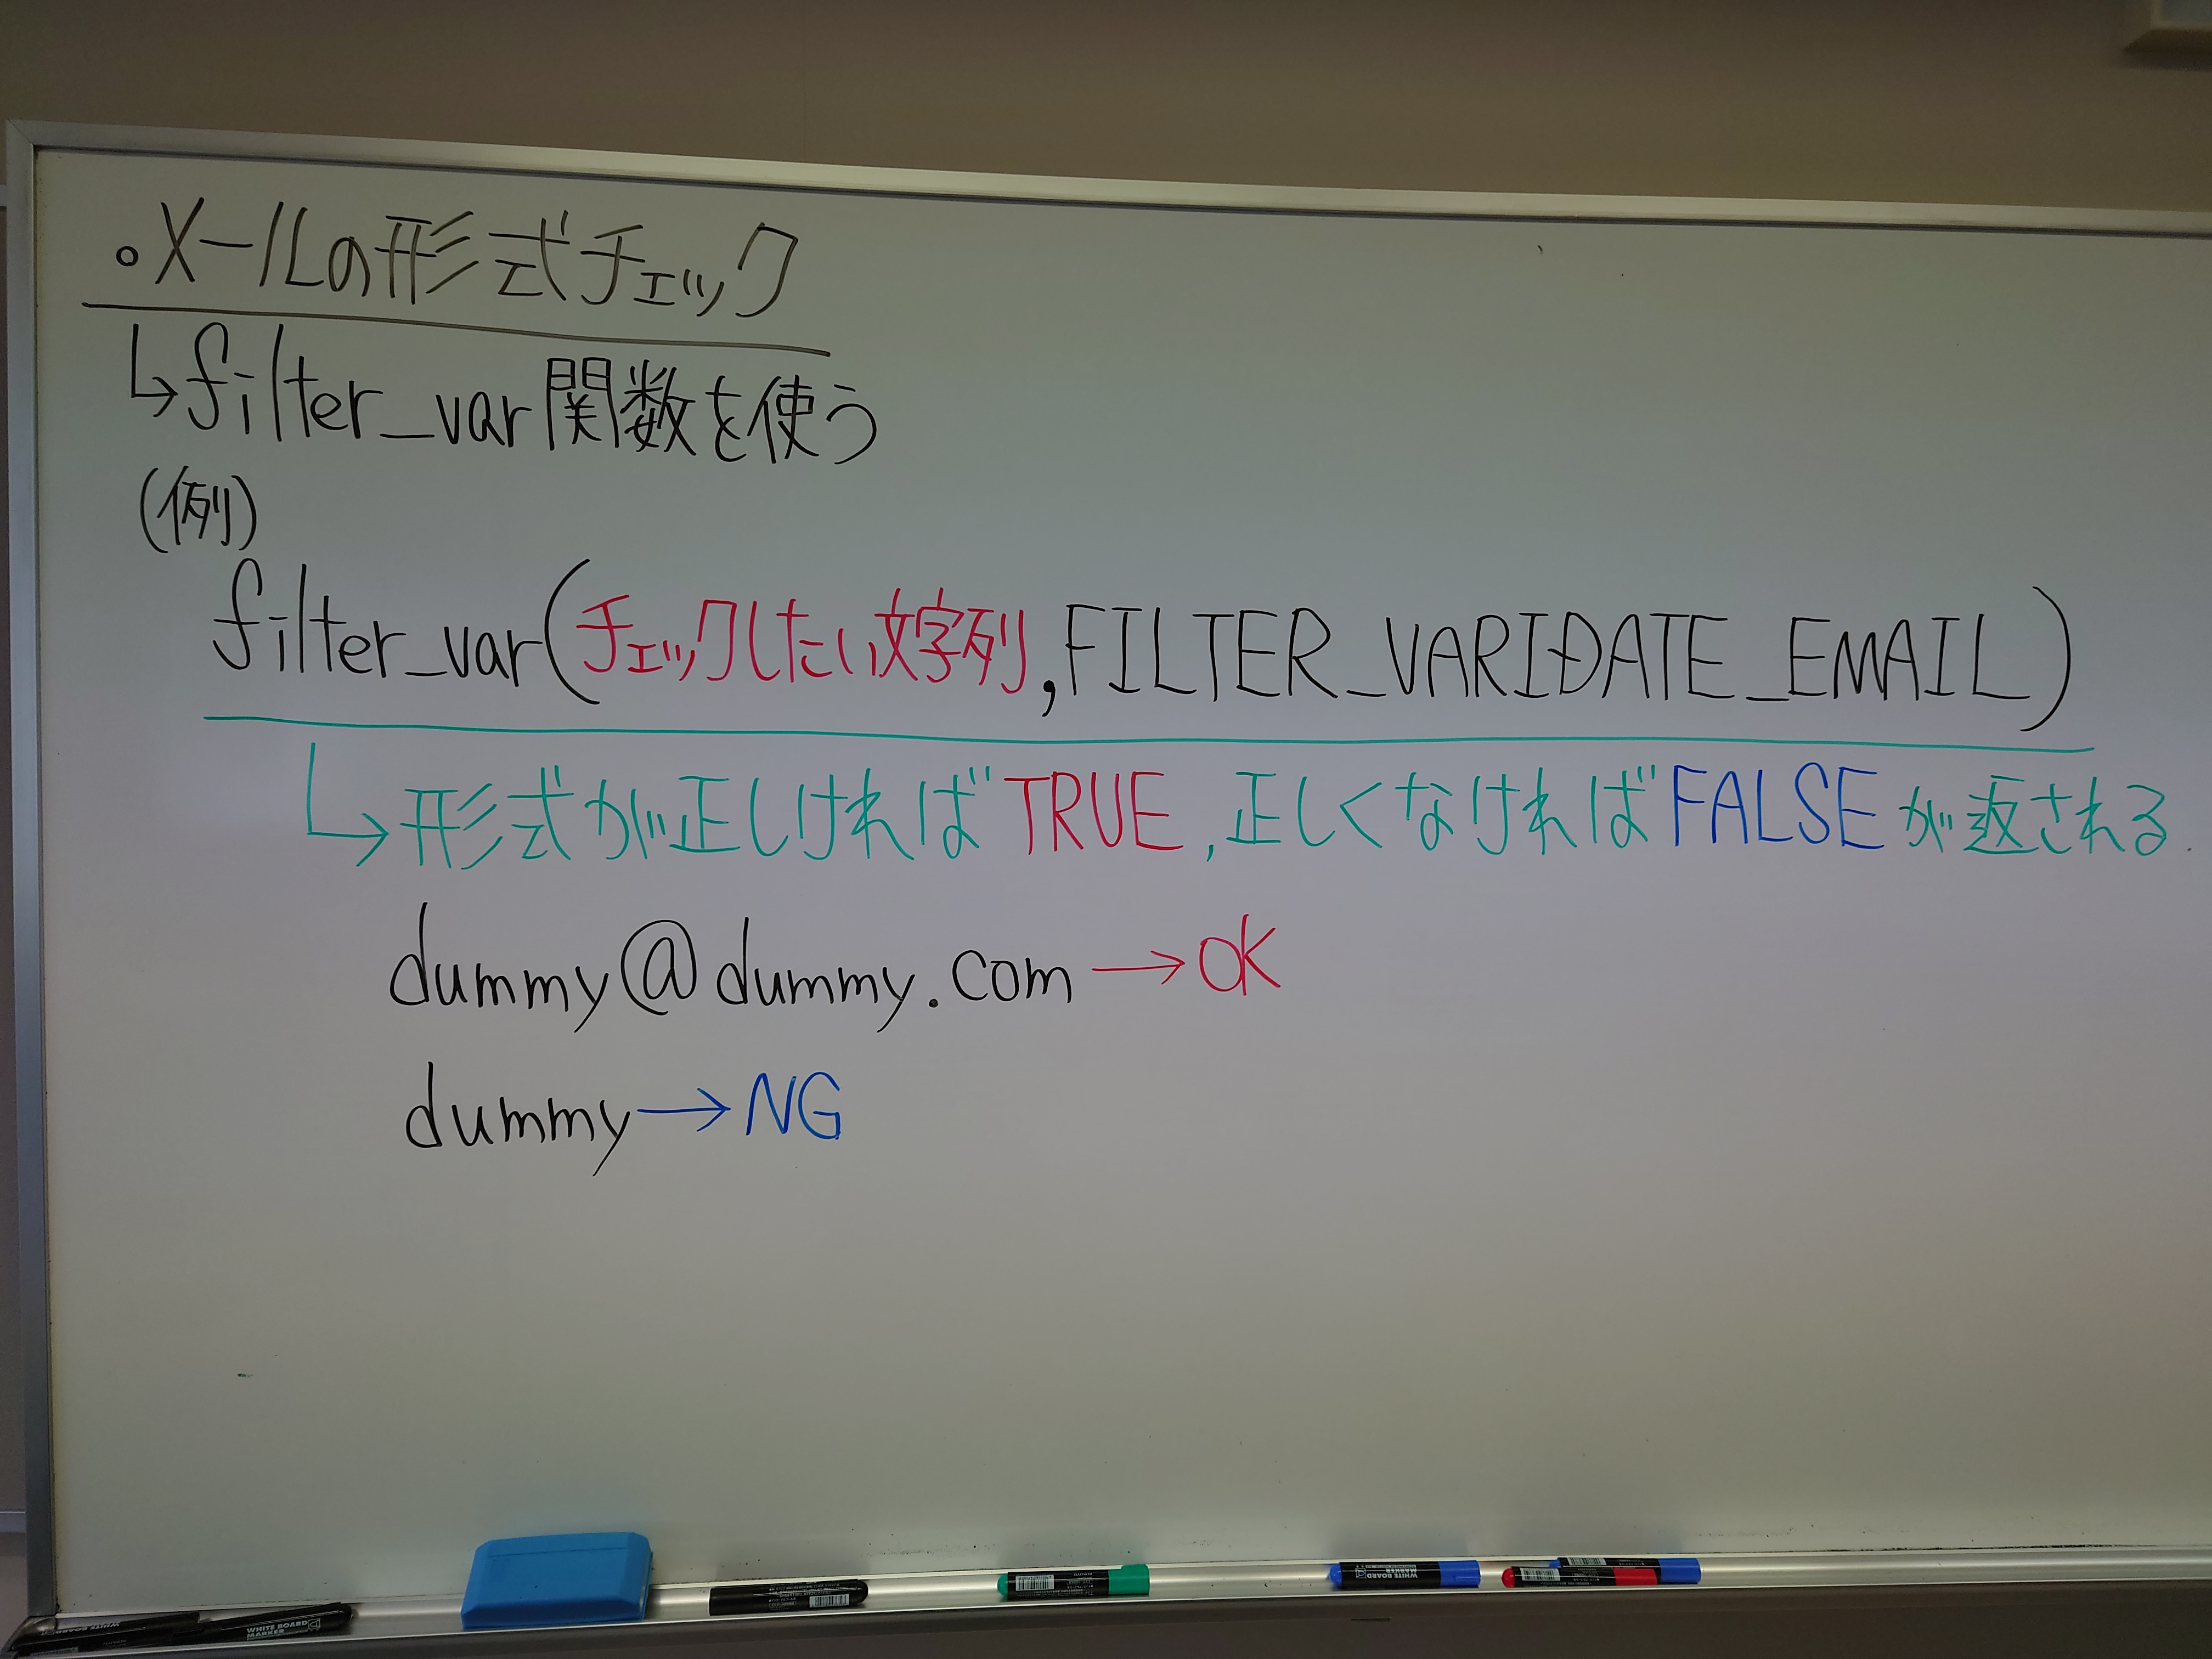 。メールの形式チェック
↳filter_var関数を使う
(例)
filter_var(チェックしたい文字列,FILTER_VARIDATE_EMAIL)
↳形式が正しければTRUE,正しくなければFALSEが返される.
dummy@dummy.com→OK
dummy→NG
WHITE BOARD MARKER
WHITE BOARD MARKER